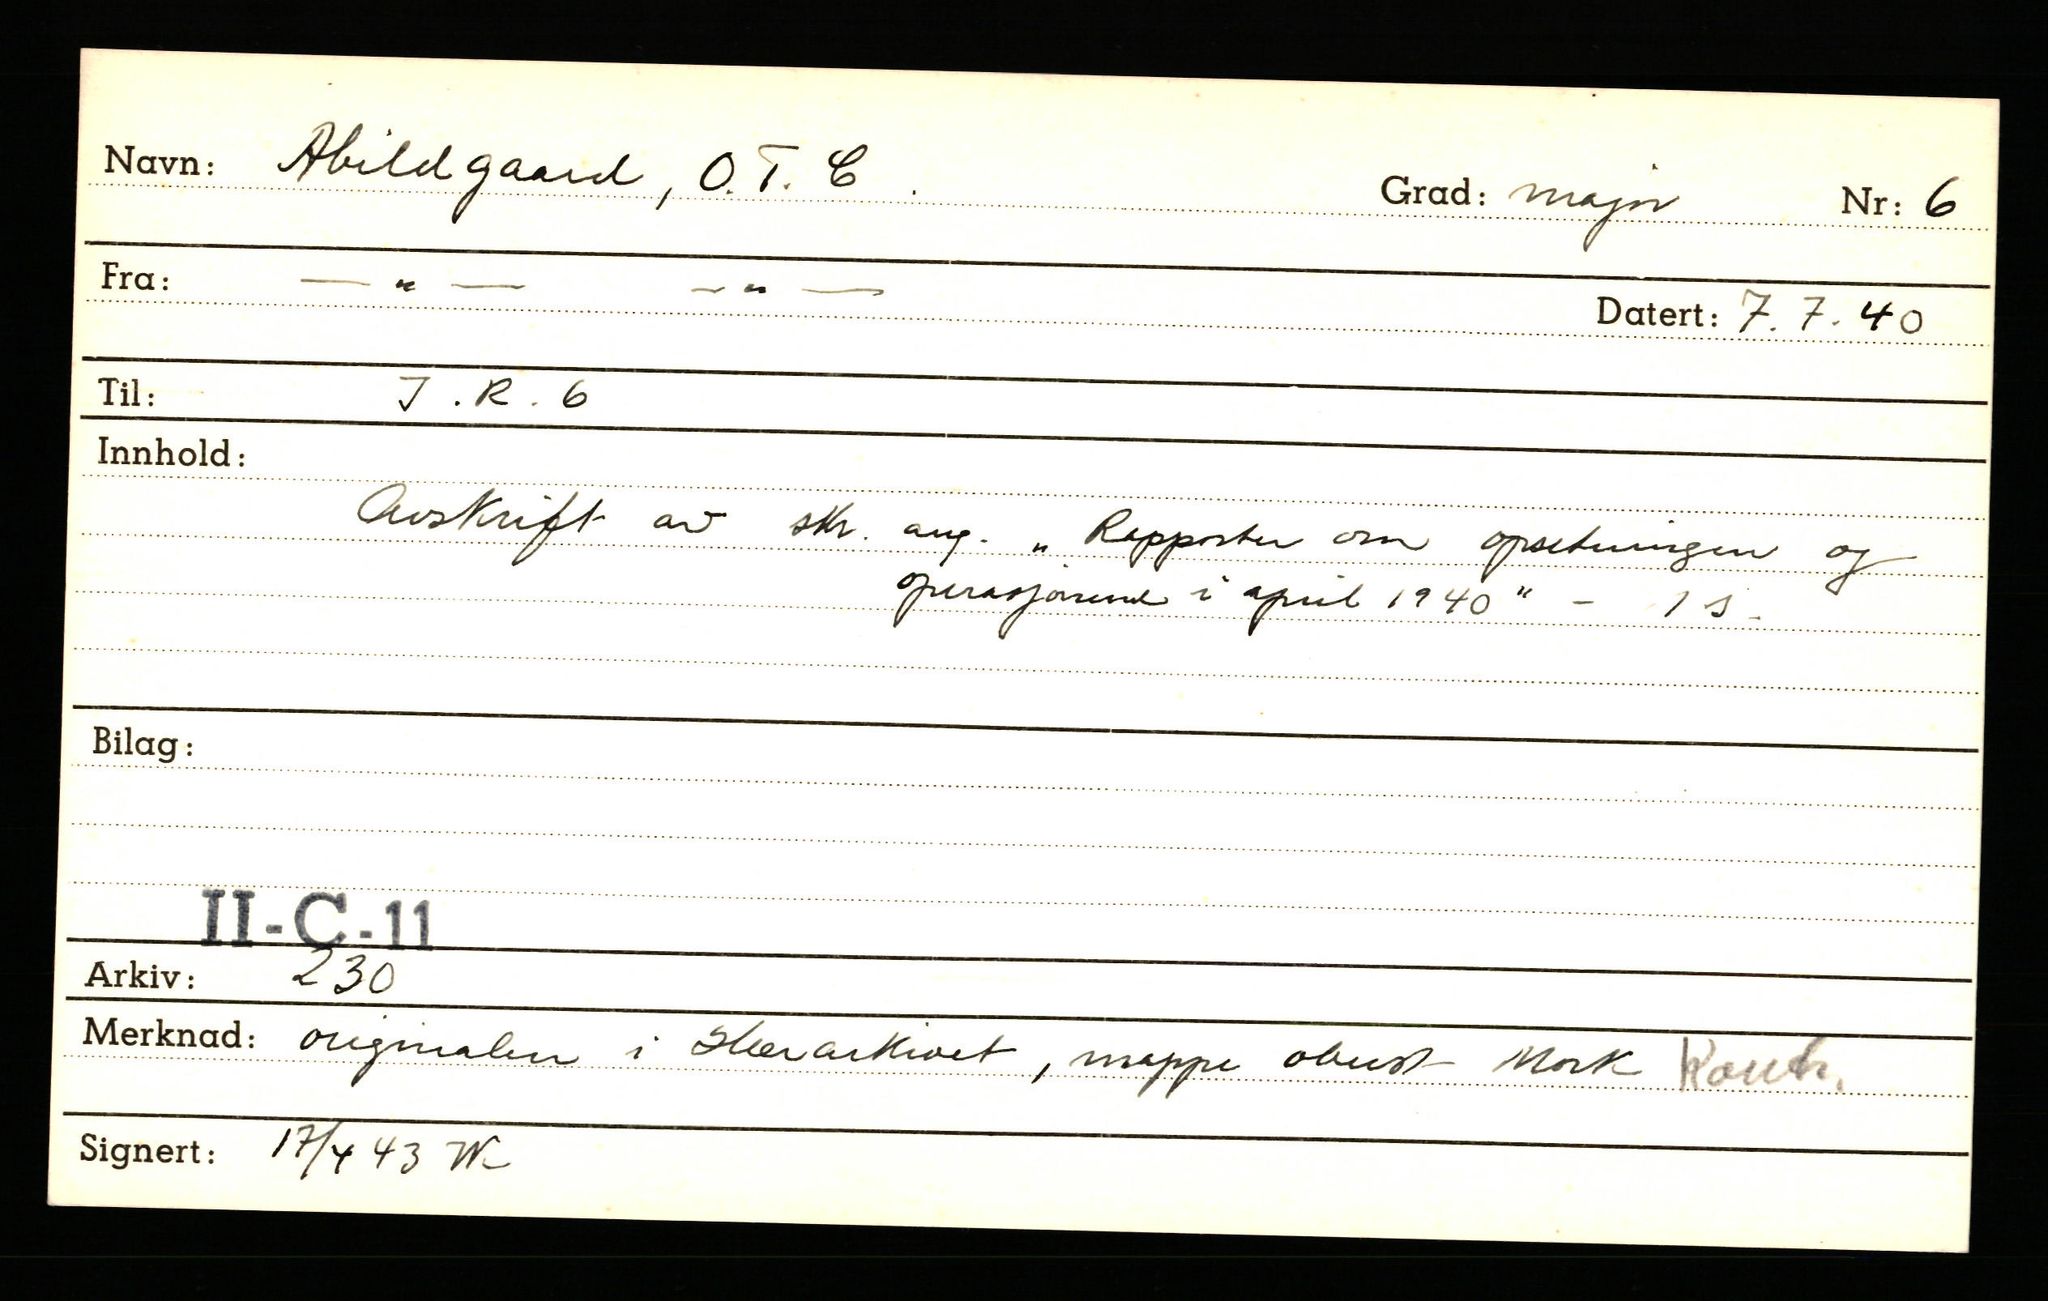 Navn: Abildgaard, O. T. C. Grad: major Nr: 6
Fra: — " — — " — Datert: 7.7.40
Til: J.R. 6
Innhold:
Avskrift av skr. ang. „Rapporter om opsetningen og
operasjonene i april 1940" - 1 s.
Bilag:
II-C-11
Arkiv: 230
Merknad: originalen i Hærarkivet, mappe oberst Mork Kontr.
Signert: 17/4 43 W